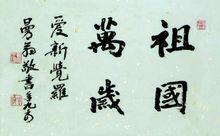 祖國
萬歲
愛新覺羅
曼翁敬書